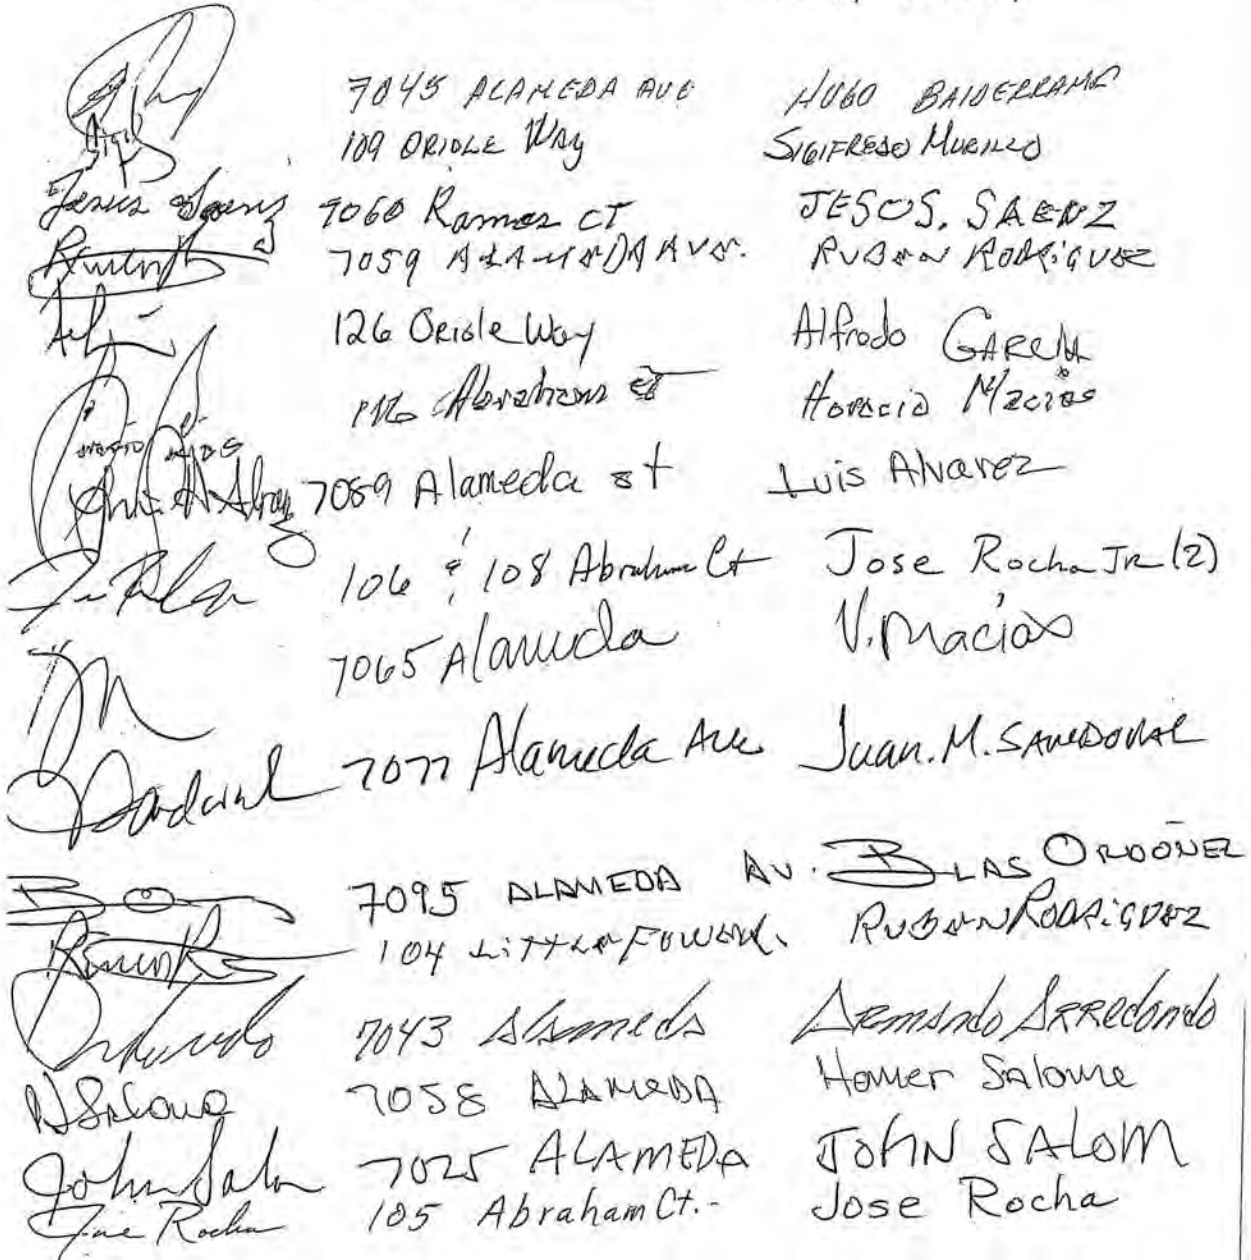 7045 ALAMEDA AVE HUGO BAIDERRAMA
109 ORIOLE WAY SIGIFREDO MURILLO
Jesus Saenz 7060 Ramos CT JESOS. SAENZ
7059 ALAMEDA AVE. RUBEN RODRiGUEZ
126 Oriole Way Alfredo GARCIA
116 Abraham ct Horacio Macias
7089 Alameda st Luis Alvarez
106 & 108 Abraham Ct Jose Rocha JR (2)
7065 Alameda V. Macias
Sandoval 7077 Alameda Ave Juan. M. SANDOVAL
7095 ALAMEDA AV. BLAS ORDOÑEZ
104 LiTTLE FLOWER. RUBEN RODRiGUEZ
7043 Alameda Armando Arredondo
H Salome 7058 ALAMEDA Homer Salome
John Salom 7025 ALAMEDA JOHN SALOM
Jose Rocha 105 Abraham Ct. - Jose Rocha